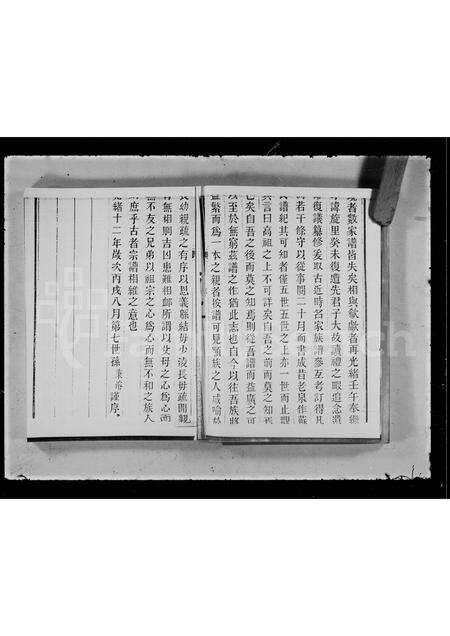 者數家譜皆失矣相與欷歔者再光緒壬午奉
諱旋里癸未復遭先君子大故讀禮之暇追念
復議纂修爰取古近時名家族譜參互考訂得凡
若干條守以從事閱二十月而書成昔老泉作蘇
氏譜紀其可知者僅五世五世之上亦一世而止觀
其言曰高祖之上不可詳矣自吾之前而莫之知焉
已矣自吾之後而莫之知焉則從吾譜而益廣之可
以至於無窮茲譜之作猶此志也自今以往吾族將
益繁而爲一本之親者按譜可見願族之人咸喻於
長幼親疏之有序以恩義聯結毋少淩長毋疏間親
有無相賙吉凶患難相卹所謂以父母之心爲心而
無不友之兄弟以祖宗之心爲心而無不和之族人
庶乎古者宗譜相維之意也
光緒十二年歲次丙戌八月第七世孫 謹序